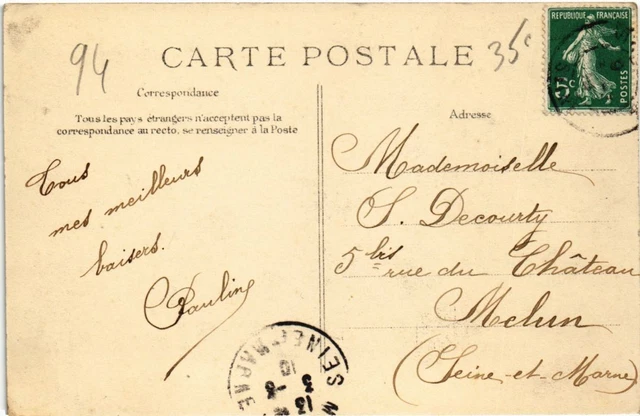 94
CARTE POSTALE
35c
RÉPUBLIQUE FRANÇAISE
5c
POSTES
Correspondance
Tous les pays étrangers n'acceptent pas la
correspondance au recto, se renseigner à la Poste
Tous
mes meilleurs
baisers.
Pauline
Adresse
Mademoiselle
S. Decourty
5 bis rue du Château
Melun
(Seine-et-Marne)
SEINE ET MARNE